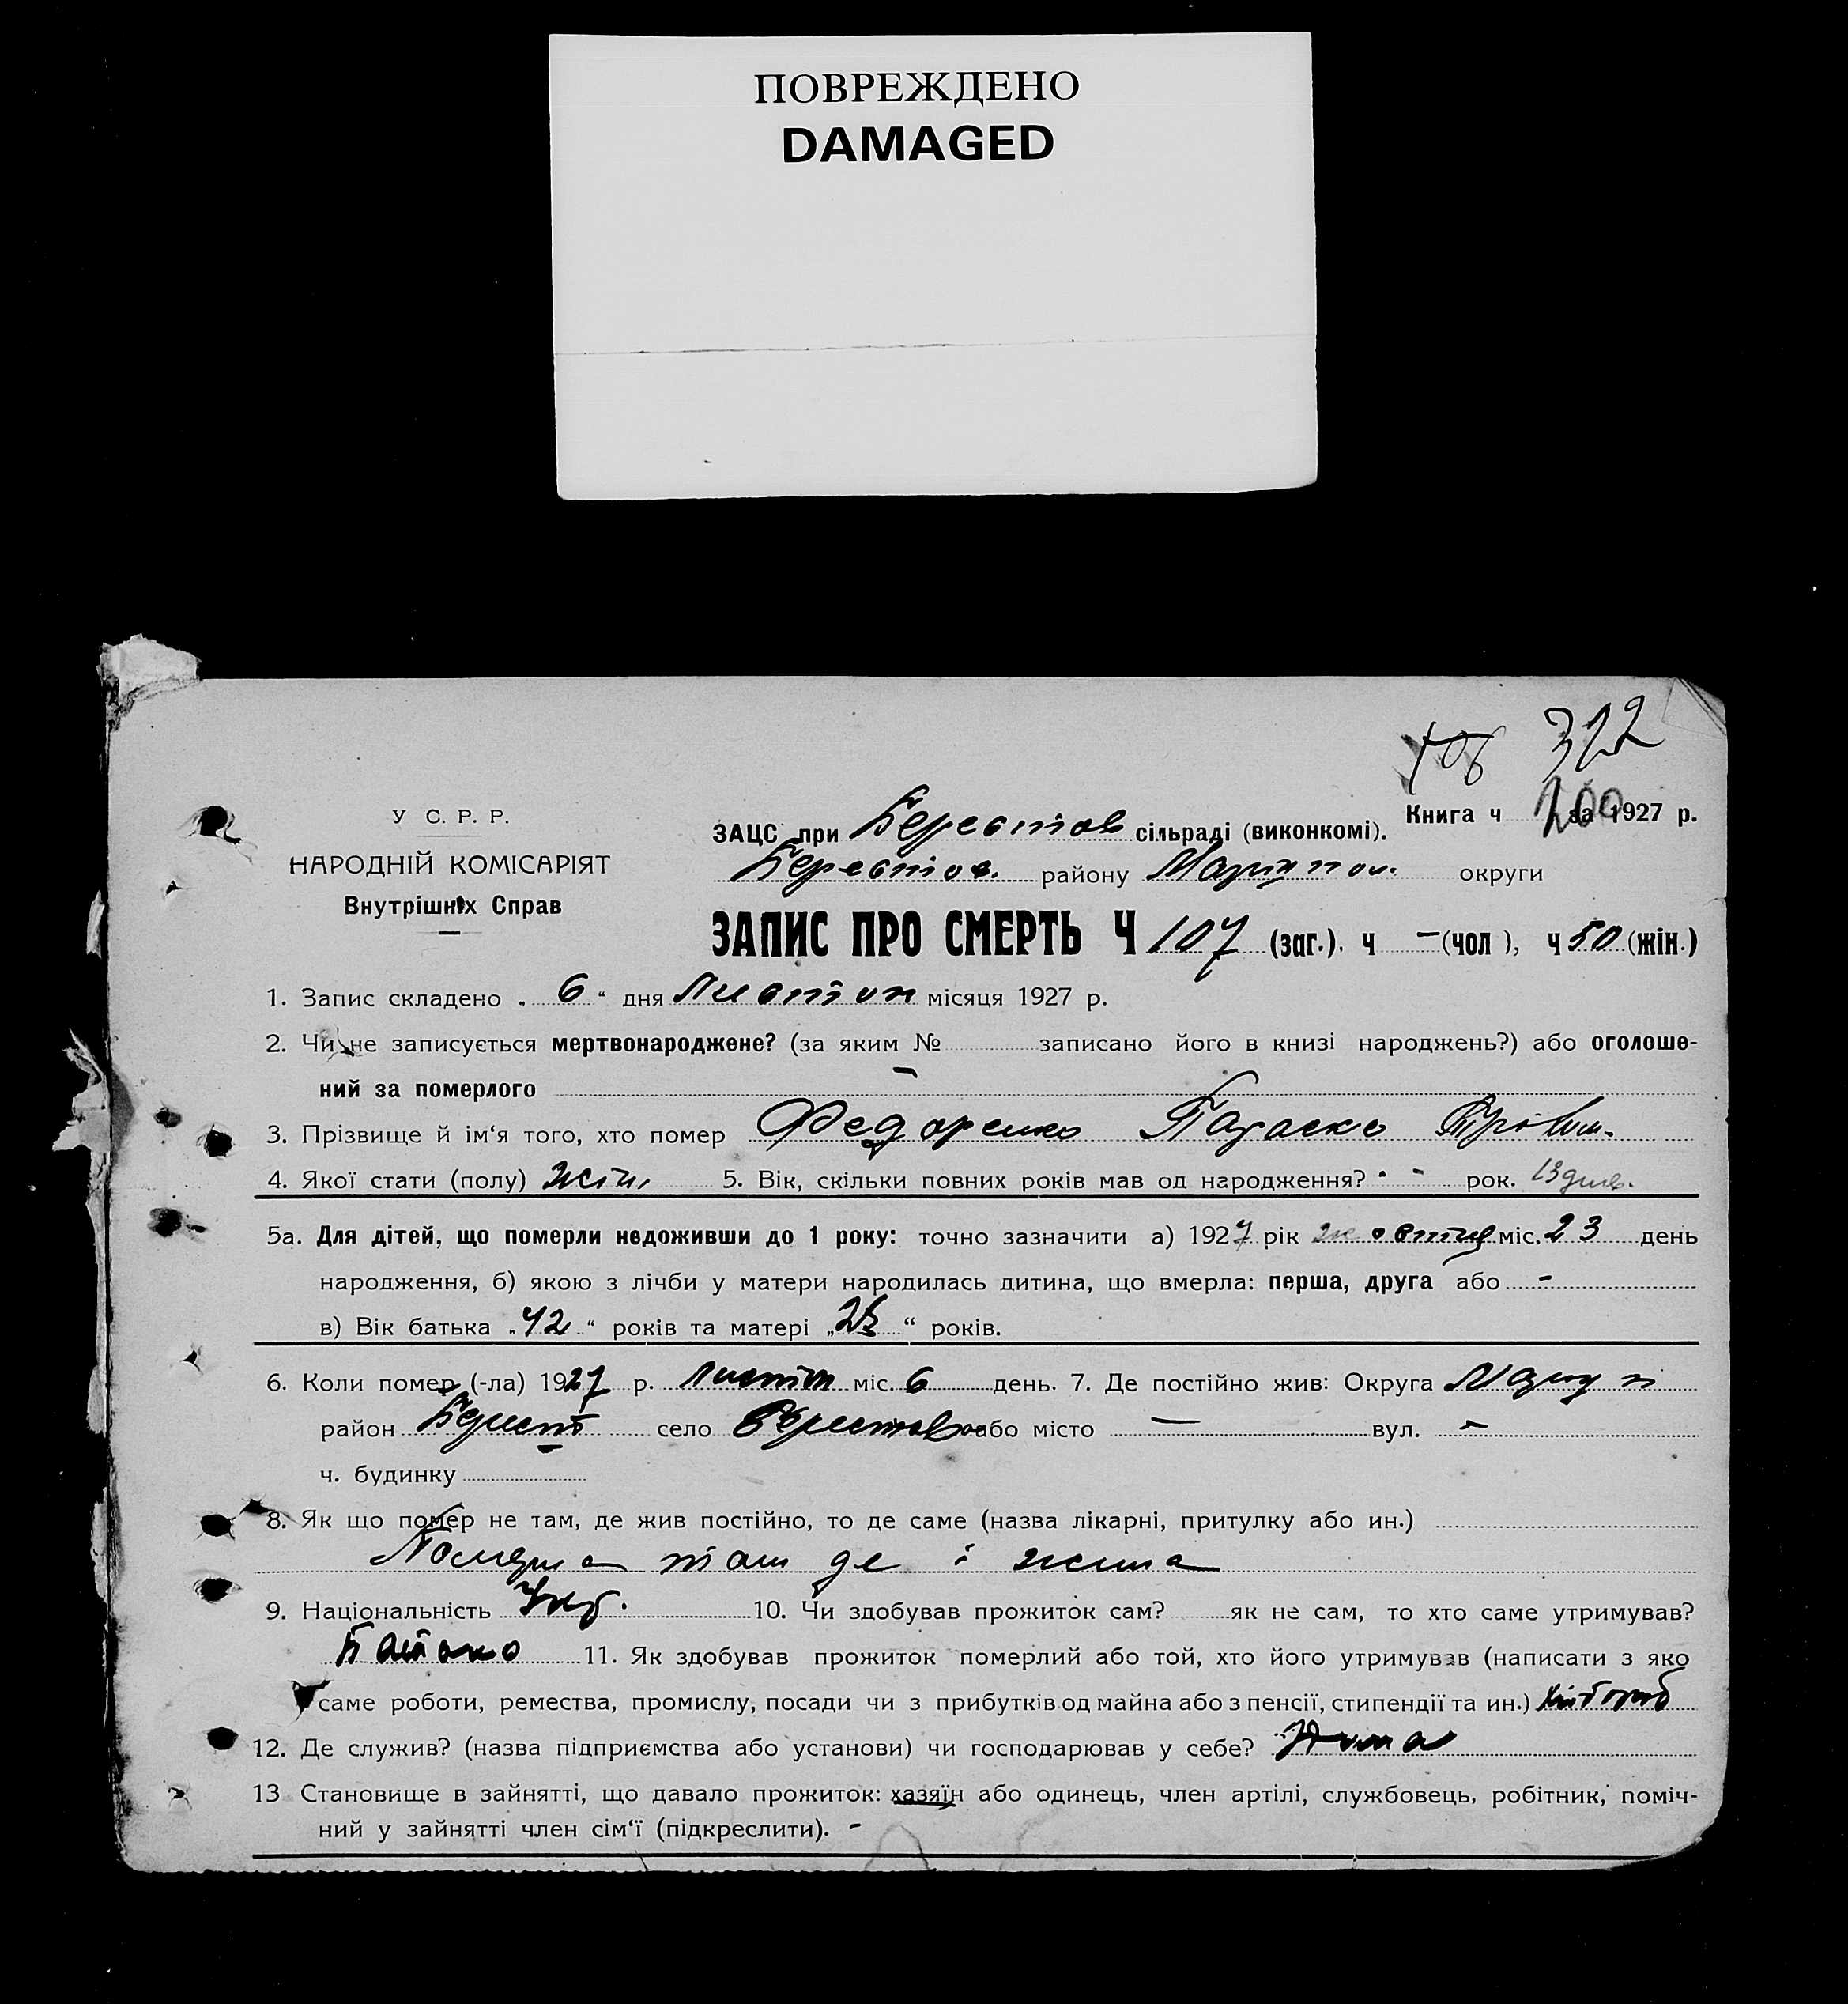 ПОВРЕЖДЕНО
DAMAGED
322
200
У С. Р. Р.
НАРОДНІЙ КОМІСАРІЯТ
Внутрішніх Справ
Книга ч за 1927 р.
ЗАЦС при Берестов сільраді (виконкомі).
Берестов. району Маріупол. округи
ЗАПИС ПРО СМЕРТЬ Ч 107 (заг.). ч — (чол ), ч 50 (жін.)
1. Запис складено „ 6 “ дня Листоп місяця 1927 р.
2. Чи не записується мертвонароджене? (за яким № записано його в книзі народжень?) або оголоше-
ний за померлого –
3. Прізвище й ім‘я того, хто помер Федоренко Параска
4. Якої стати (полу) жін. 5. Вік, скільки повних років мав од народження? - рок. 13 днів.
5а. Для дітей, що померли недоживши до 1 року: точно зазначити а) 1927 рік жовтня міс. 23 день
народження, б) якою з лічби у матери народилась дитина, що вмерла: перша, друга або -
в) Вік батька „ 42 “ років та матері „ “ років.
6. Коли помер (-ла) 1927 р. листоп міс. 6 день. 7. Де постійно жив: Округа Маріуп
район Берест село Берестов або місто — вул. –
ч. будинку
8. Як що помер не там, де жив постійно, то де саме (назва лікарні, притулку або ин.)
Померла там де і жила
9. Національність Укр. 10. Чи здобував прожиток сам? як не сам, то хто саме утримував?
Батько 11. Як здобував прожиток померлий або той, хто його утримував (написати з яко
саме роботи, ремества, промислу, посади чи з прибутків од майна або з пенсії, стипендії та ин.) хлібороб
12. Де служив? (назва підприємства або установи) чи господарював у себе? Дома
13 Становище в зайнятті, що давало прожиток: хазяїн або одинець, член артілі, службовець, робітник, поміч-
ний у зайнятті член сім‘ї (підкреслити). -